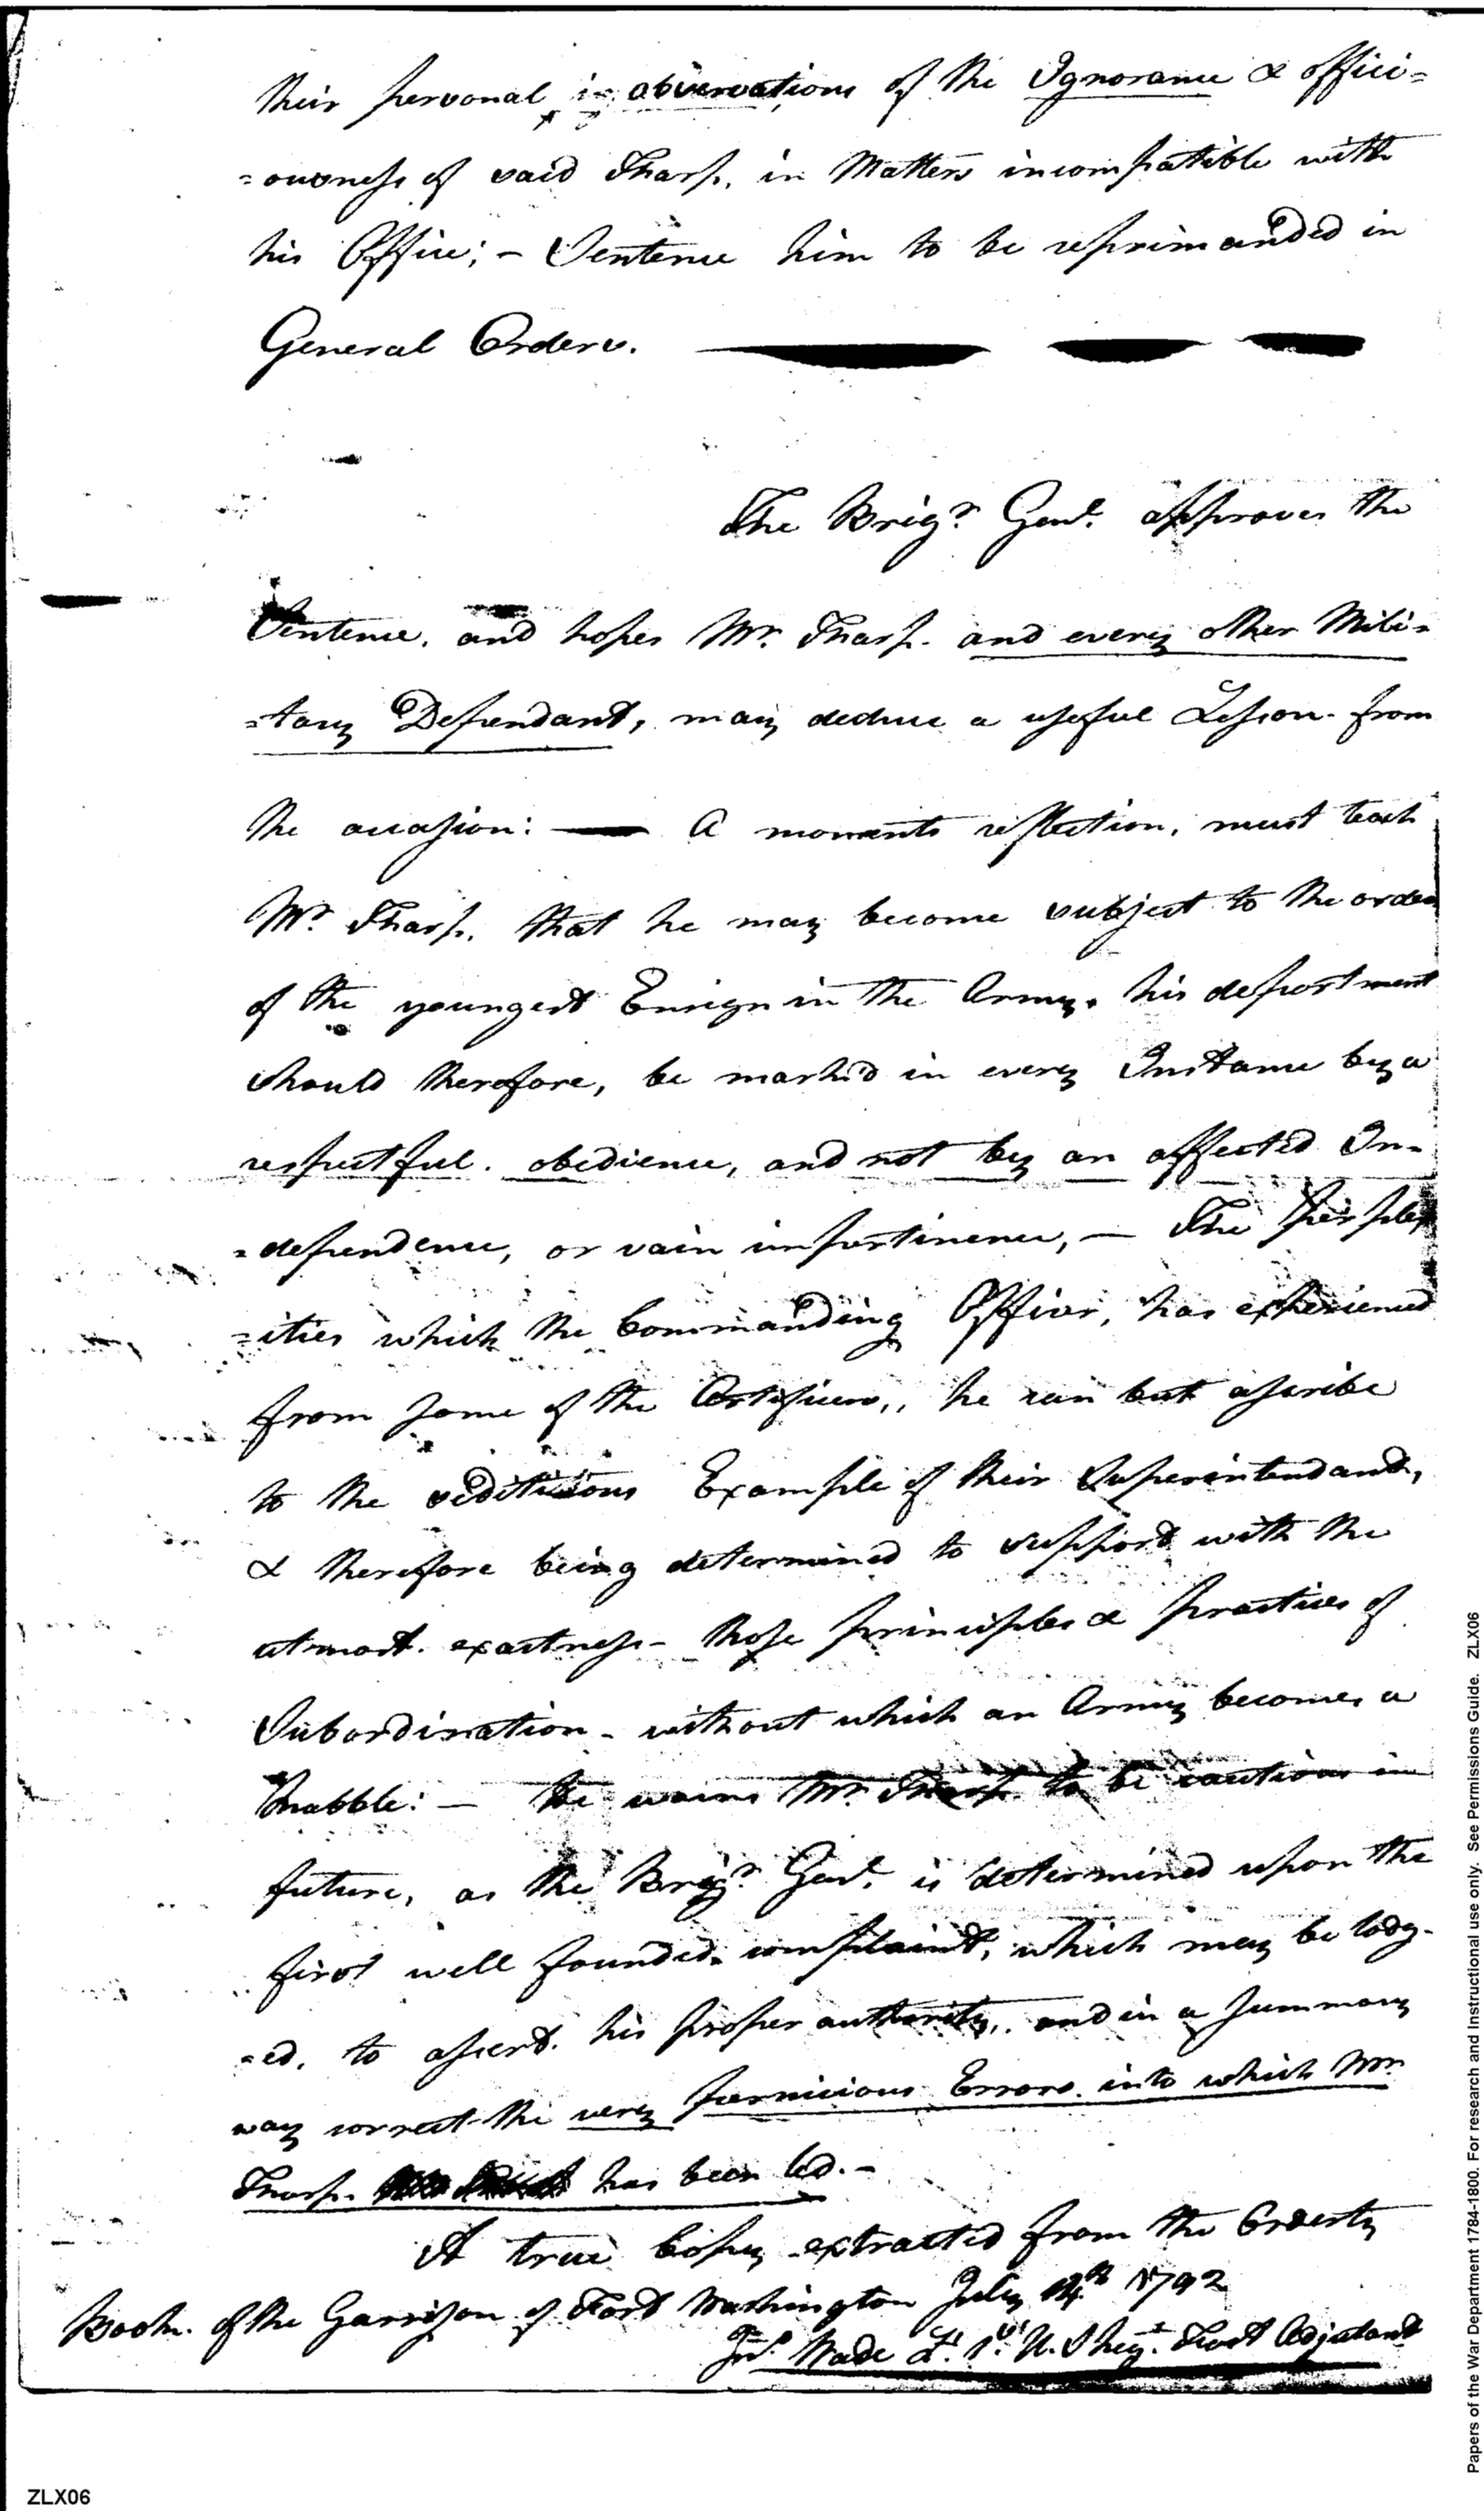 their personal observations of the Ignorance & offici=
=ousness of said Tharp, in Matters incompatible with
his Office; – Sentence him to be reprimanded in
General Orders.
The Brigr. Genl. approves the
Sentence, and hopes Mr. Tharp. and every other Mili=
=tary Dependant, may deduce a useful Lesson from
the occasion: — A moments reflection, must teach
Mr. Tharp, that he may become subject to the orders
of the youngest Ensign in the Army, his deportment
should therefore, be mark'd in every Instance by a
respectful. obedience, and not by an affected In=
=dependence, or vain impertinence, — The perplex
=ities which the Commanding Officer, has experienced
from some of the Artificers,, he can but ascribe
to the seditious Example of their Superintendant,
& therefore being determined to support with the
utmost. exactness – those principles & practices of
Subordination – without which an Army becomes a
Rabble: — He warns Mr. Tharp to be cautious in
future, as the Brigr. Genl. is determined upon the
first well founded. complaint, which may be lodg-
=ed, to assert. his proper authority,. and in a summary
way correct the very pernicious Errors. into which Mr.
Tharp. has been led. –
A true Copy extracted from the Orderly
Book. of the Garrison of Fort Washington July 14th 1792
Jno. Wade Lt. 1st. U. S. Regt. Post Adjutant
ZLX06
Papers of the War Department 1784-1800. For research and Instructional use only. See Permissions Guide. ZLX06